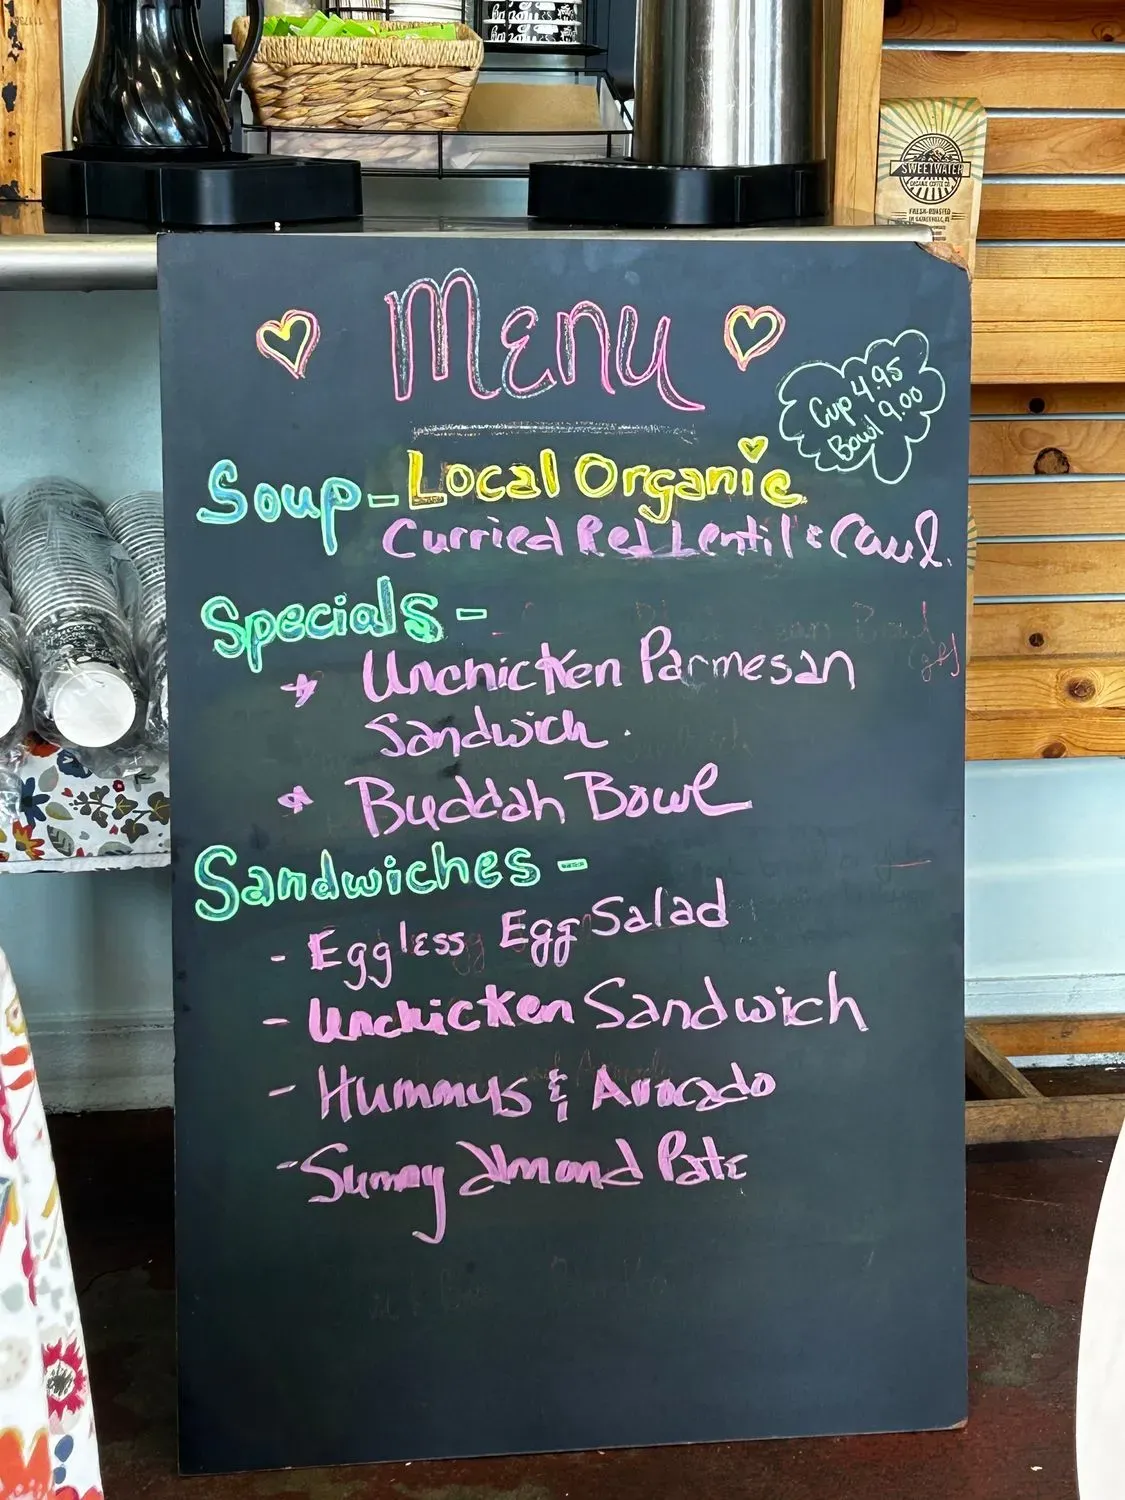 Menu
Cup 4.95
Bowl 9.00
Soup - Local Organic
Curried Red Lentil & Caul.
Specials -
Unchicken Parmesan
Sandwich.
Buddah Bowl
Sandwiches -
- Eggless Egg Salad
- Unchicken Sandwich
- Hummus & Avocado
- Sunny Almond Pate
SWEETWATER
ORGANIC COFFEE CO.
FRESH-ROASTED
IN GAINESVILLE, FL